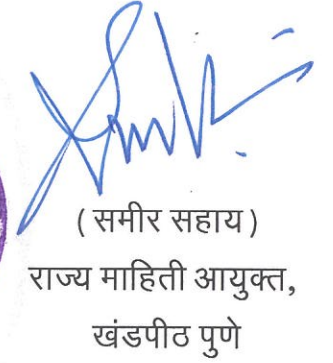 ( समीर सहाय )
राज्य माहिती आयुक्त,
खंडपीठ पुणे